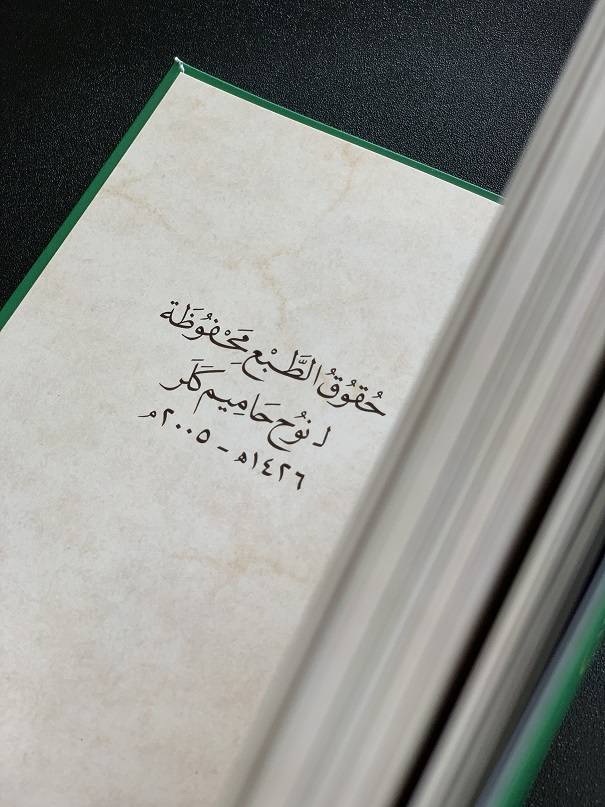 حُقُوقُ الطَّبْعِ مَحْفُوظَة
لِـ نُوح حَامِيم كَلَر
١٤٢٦هـ - ٢٠٠٥م